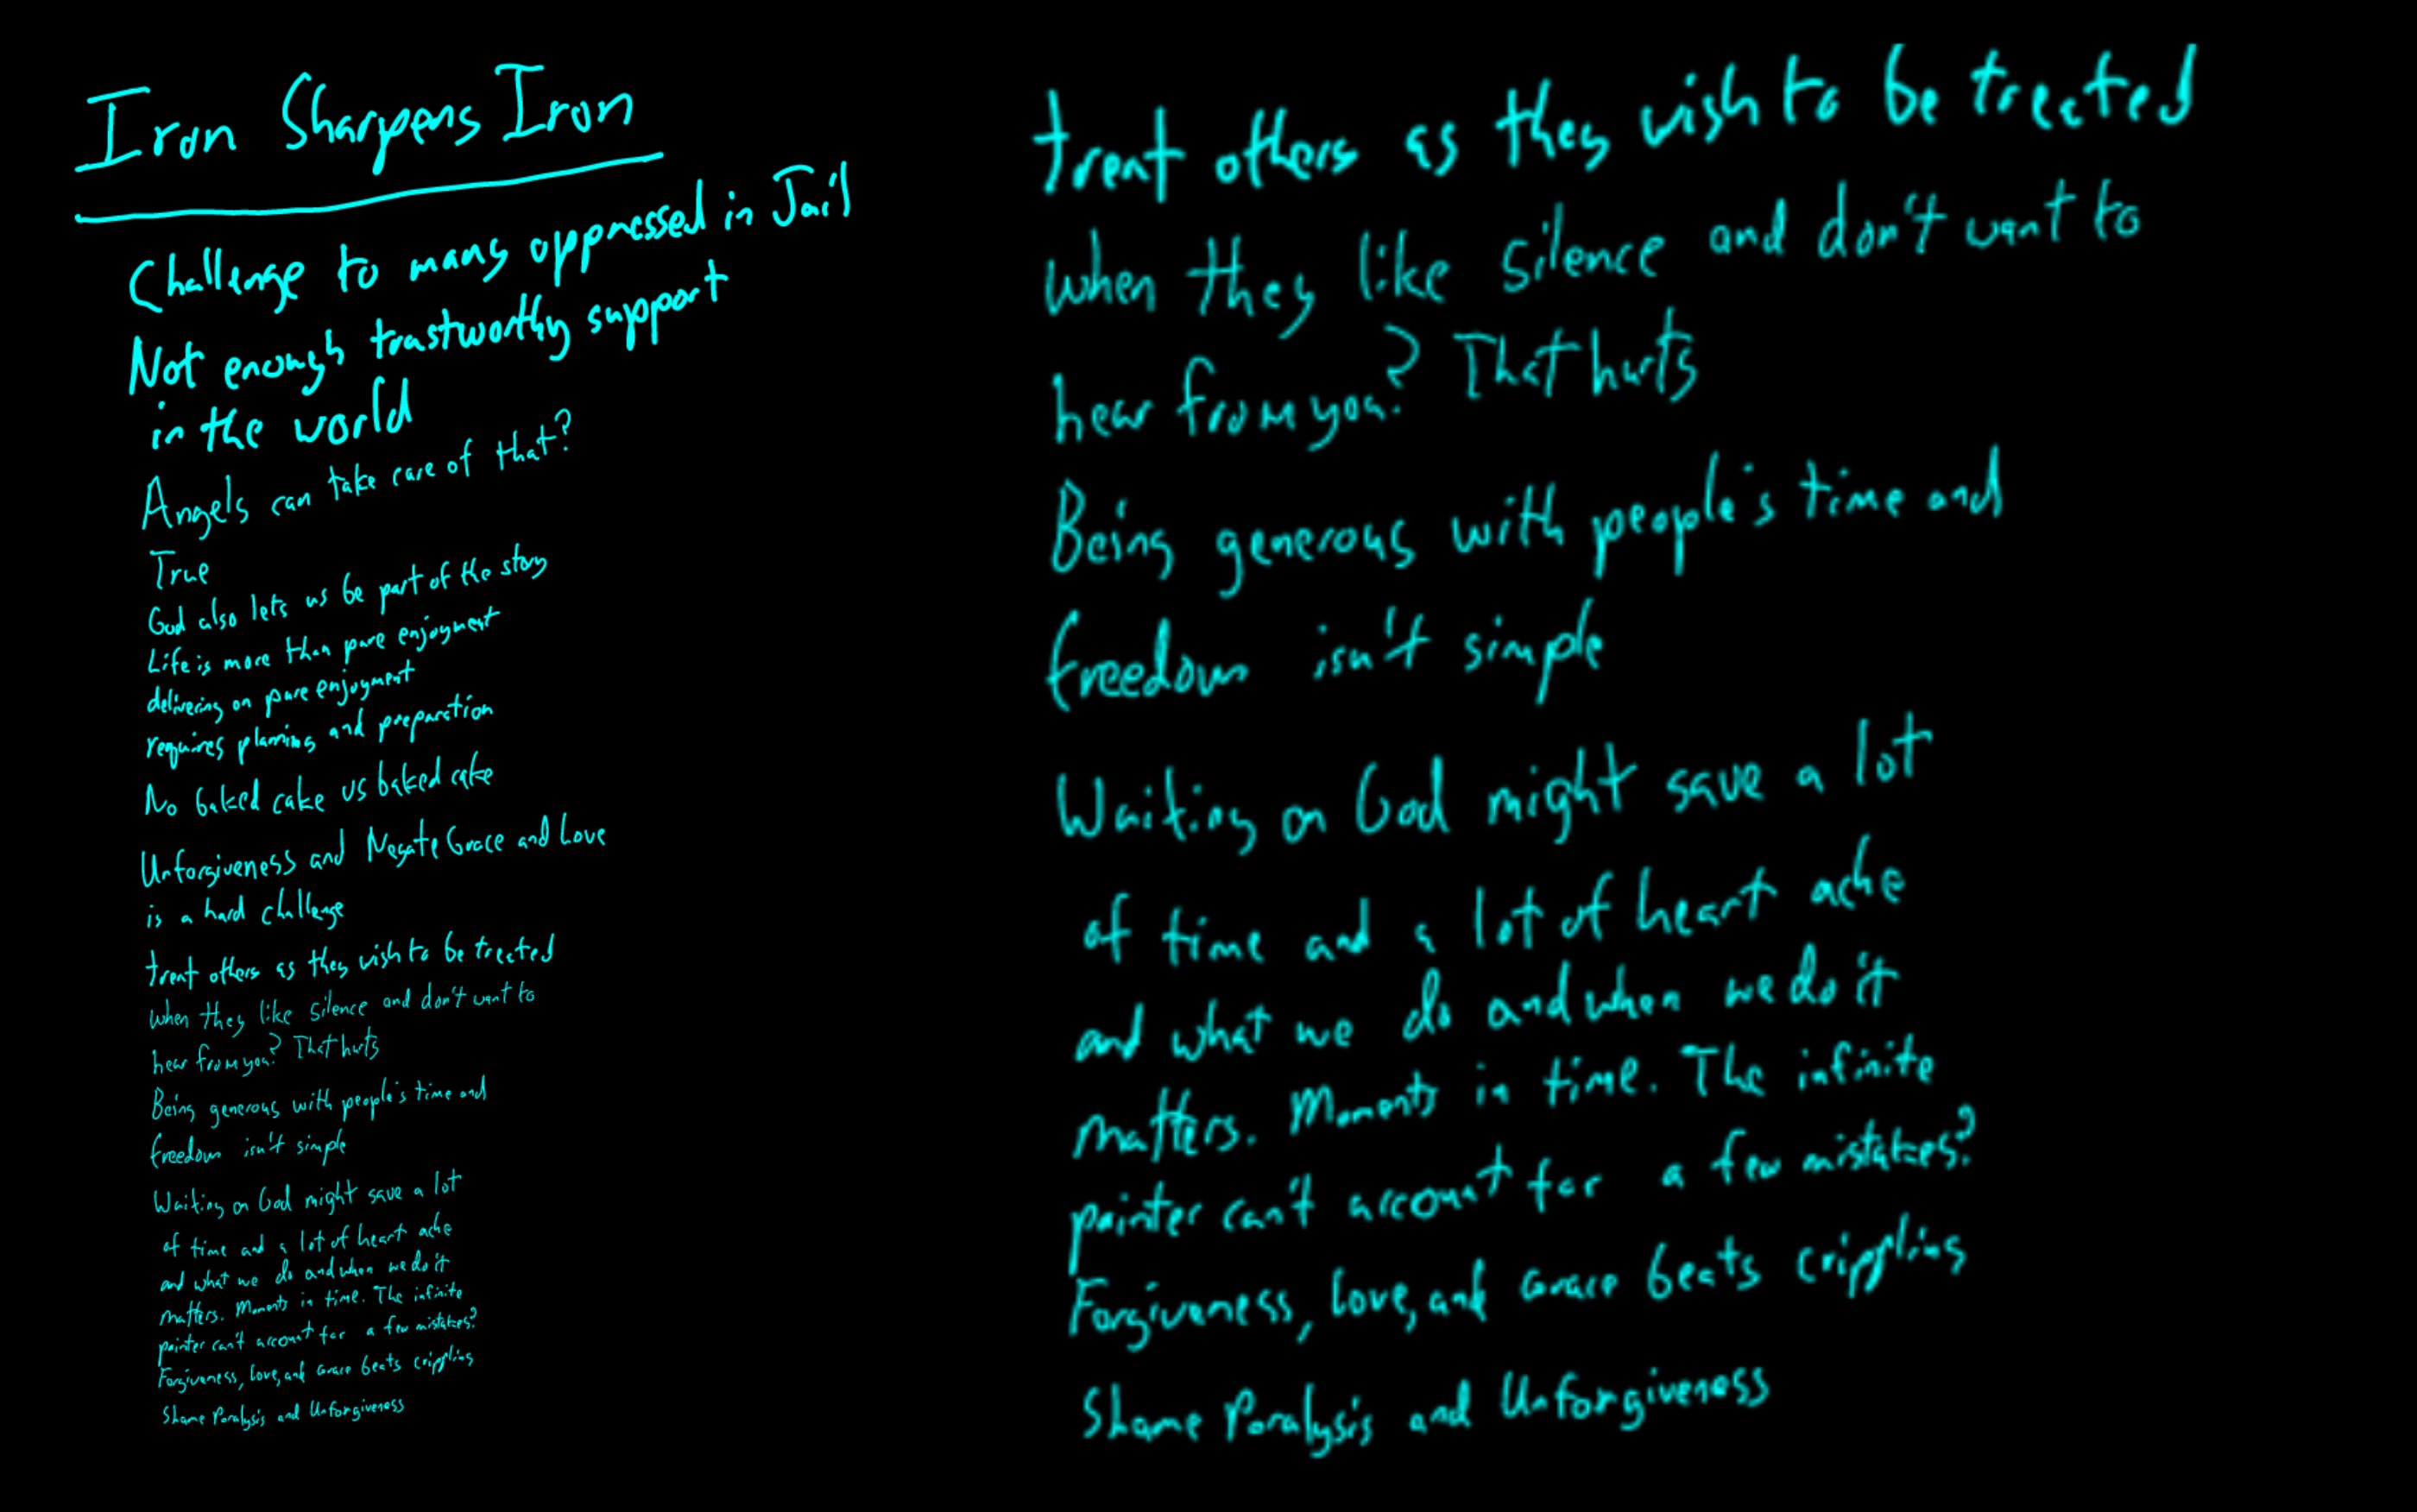 Iron Sharpens Iron
Challenge to many oppressed in Jail
Not enough trustworthy support
in the world
Angels can take care of that?
True
God also lets us be part of the story
Life is more than pure enjoyment
delivering on pure enjoyment
requires planning and preparation
No baked cake vs baked cake
Unforgiveness and Negate Grace and Love
is a hard challenge
treat others as they wish to be treated
when they like silence and don't want to
hear from you? That hurts
Being generous with people's time and
freedom isn't simple
Waiting on God might save a lot
of time and a lot of heart ache
and what we do and when we do it
matters. Moments in time. The infinite
painter can't account for a few mistakes?
Forgiveness, Love, and Grace beats crippling
Shame Paralysis and Unforgiveness
treat others as they wish to be treated
when they like silence and don't want to
hear from you? That hurts
Being generous with people's time and
freedom isn't simple
Waiting on God might save a lot
of time and a lot of heart ache
and what we do and when we do it
matters. Moments in time. The infinite
painter can't account for a few mistakes?
Forgiveness, Love, and Grace beats crippling
Shame Paralysis and Unforgiveness